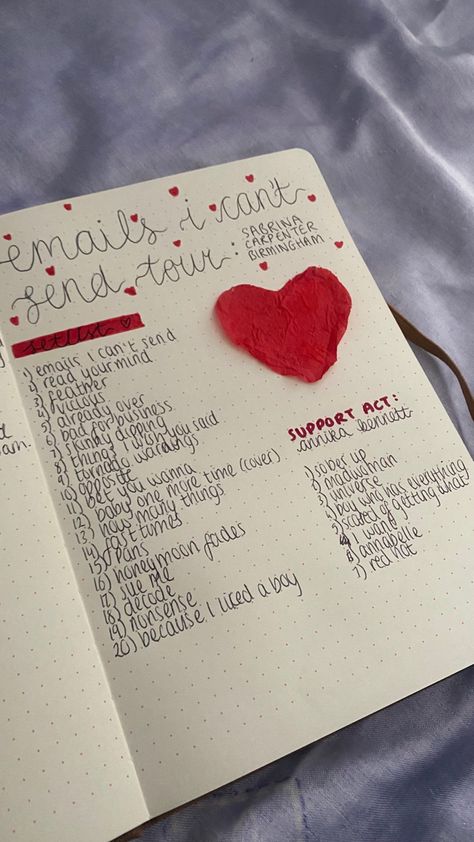 emails i can't
send tour:
SABRINA
CARPENTER
BIRMINGHAM
setlist
1) emails I can't send
2) read your mind
3) feather
4) vicious
5) already over
6) bad for business
7) skinny dipping
8) things I wish you said
9) tornado warnings
10) opposite
11) bet you wanna
12) baby one more time (cover)
13) how many things
14) fast times
15) paris
16) honeymoon fades
17) sue me
18) decode
19) nonsense
20) because I liked a boy
SUPPORT ACT:
annika bennett
1) sober up
2) madwoman
3) universe
4) boy who has everything
5) scared of getting what
I want
6) annabelle
7) red hot